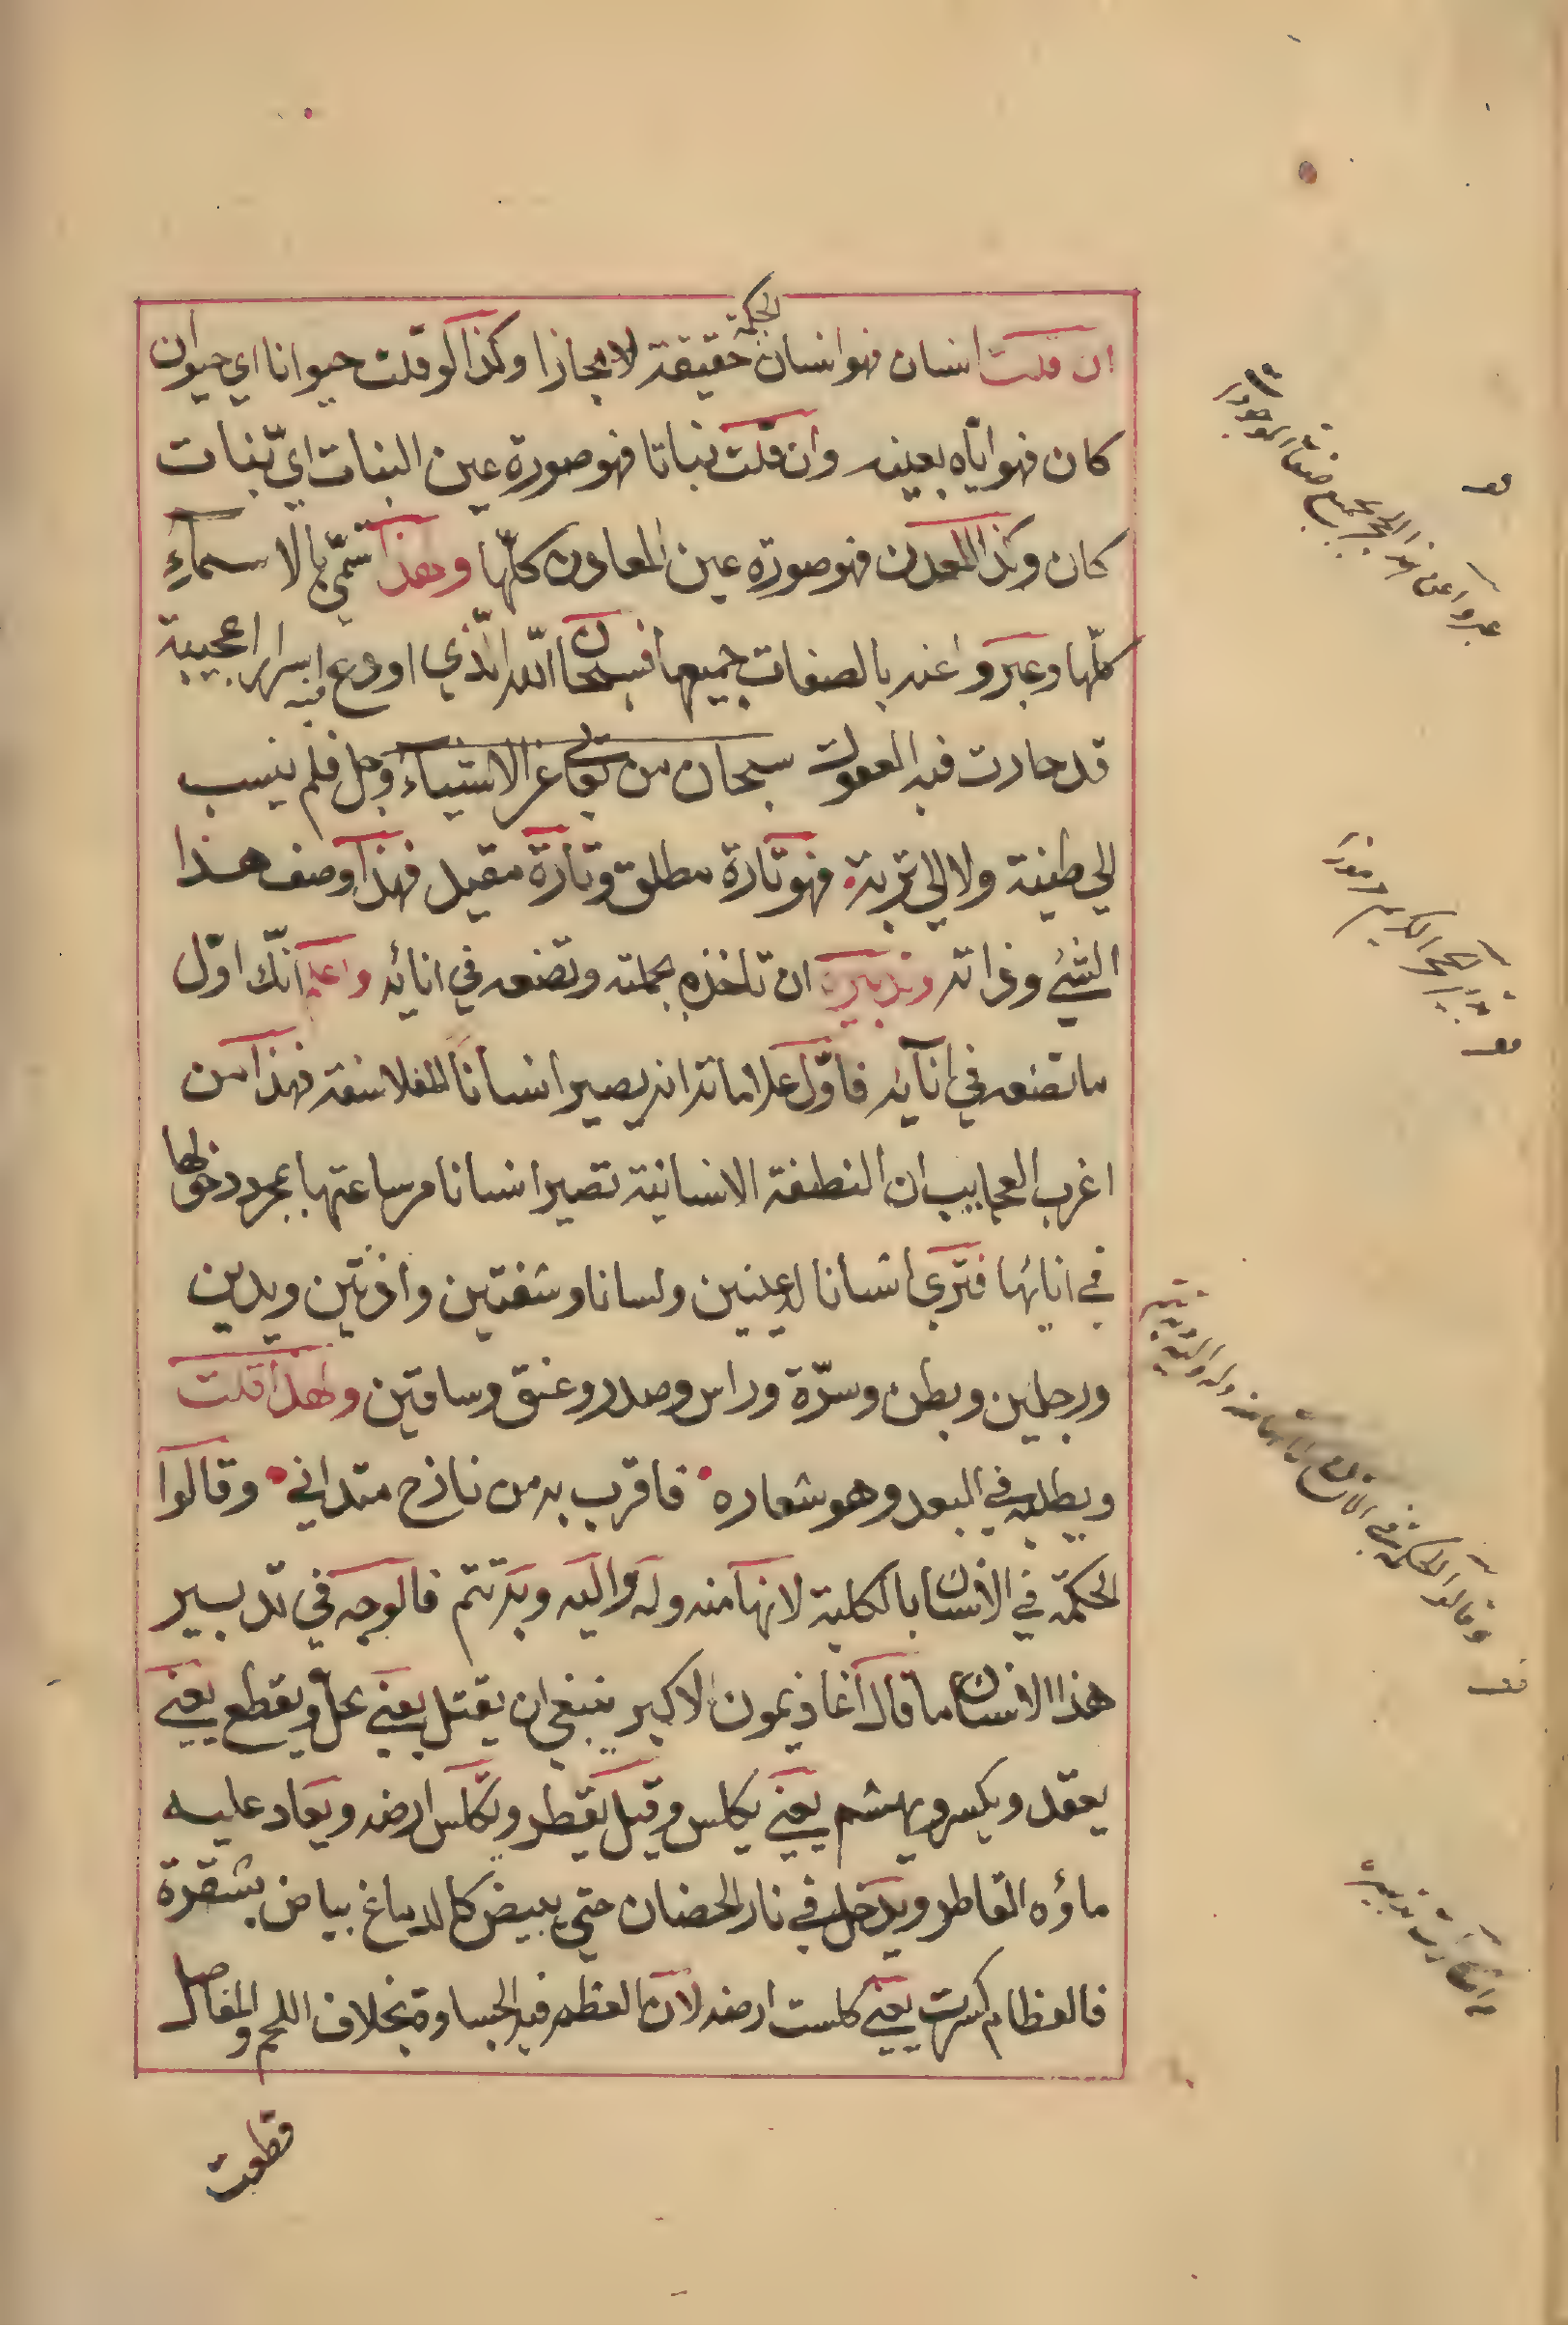 ان قلت انسان فهو انسان الحكمة حقيقة لا مجازا وكذا لو قلت حيوانا اي حيوان
كان فهو ايّاه بعينه وان قلت نباتا فهو صورة عين النبات ايّ نبات
كان وكذا المعدن فهو صورة عين المعادن كلّها وهذا تسمّي بالاسماءِ
كلّها وعبروا عنه بالصفات جميعها فسبحان الله الّذي اودع فيه اسرارا عجيبة
قد حارت فيه العقول سبحان من تعالى عن الاشياء وجل فلم ينسب
الي طينة ولا الي تربة فهو تارة مطلق وتارة مقيد فهذا وصف هذا
الشئ وذاته وتدبيره ان تاخذه بجملته وتضعه في انائه واعلم انّك اوّل
ما تضعه في انآئه فاوّل علاماته انه يصير انساناً للفلاسفة فهذا من
اغرب العجايب ان النطفة الانسانية تصير انسانا من ساعتها بمجرد دخولها
في انائها فتري انسانا له عينين ولسانا وشفتين واذنين ويدين
ورجلين وبطن وسرّة وراس وصدر وعنق وساقين ولهذا قلت
ويطلبه في البعد وهو شعاره فاقرب به من نازح متداني وقالوا
الحكمة في الانسان بالكلية لانها منه وله واليه وبه تتم فالوجه في تدبير
هذا الانسان ما قال آغاذيمون الاكبر ينبغي ان يقتل يعني يحل ويقطع يعني
يعقد ويكسر ويهشم يعني يكلس وقيل يقطر وتكلس ارضه ويعاد عليه
ماؤه القاطر ويدخل في نار الحضان حتي يبيض كالدماغ بياض بشقرة
فالعظام كسرت يعني كلست ارضه لان العظم فيه الجساوة بخلاف اللحم والمفاصل
قطعت
عبروا عن هذا الحجر بجميع صفات الموجودات
الحجر الكريم
وقالوا الحكمة في الانسان لانها منه وله واليه وبه تتم